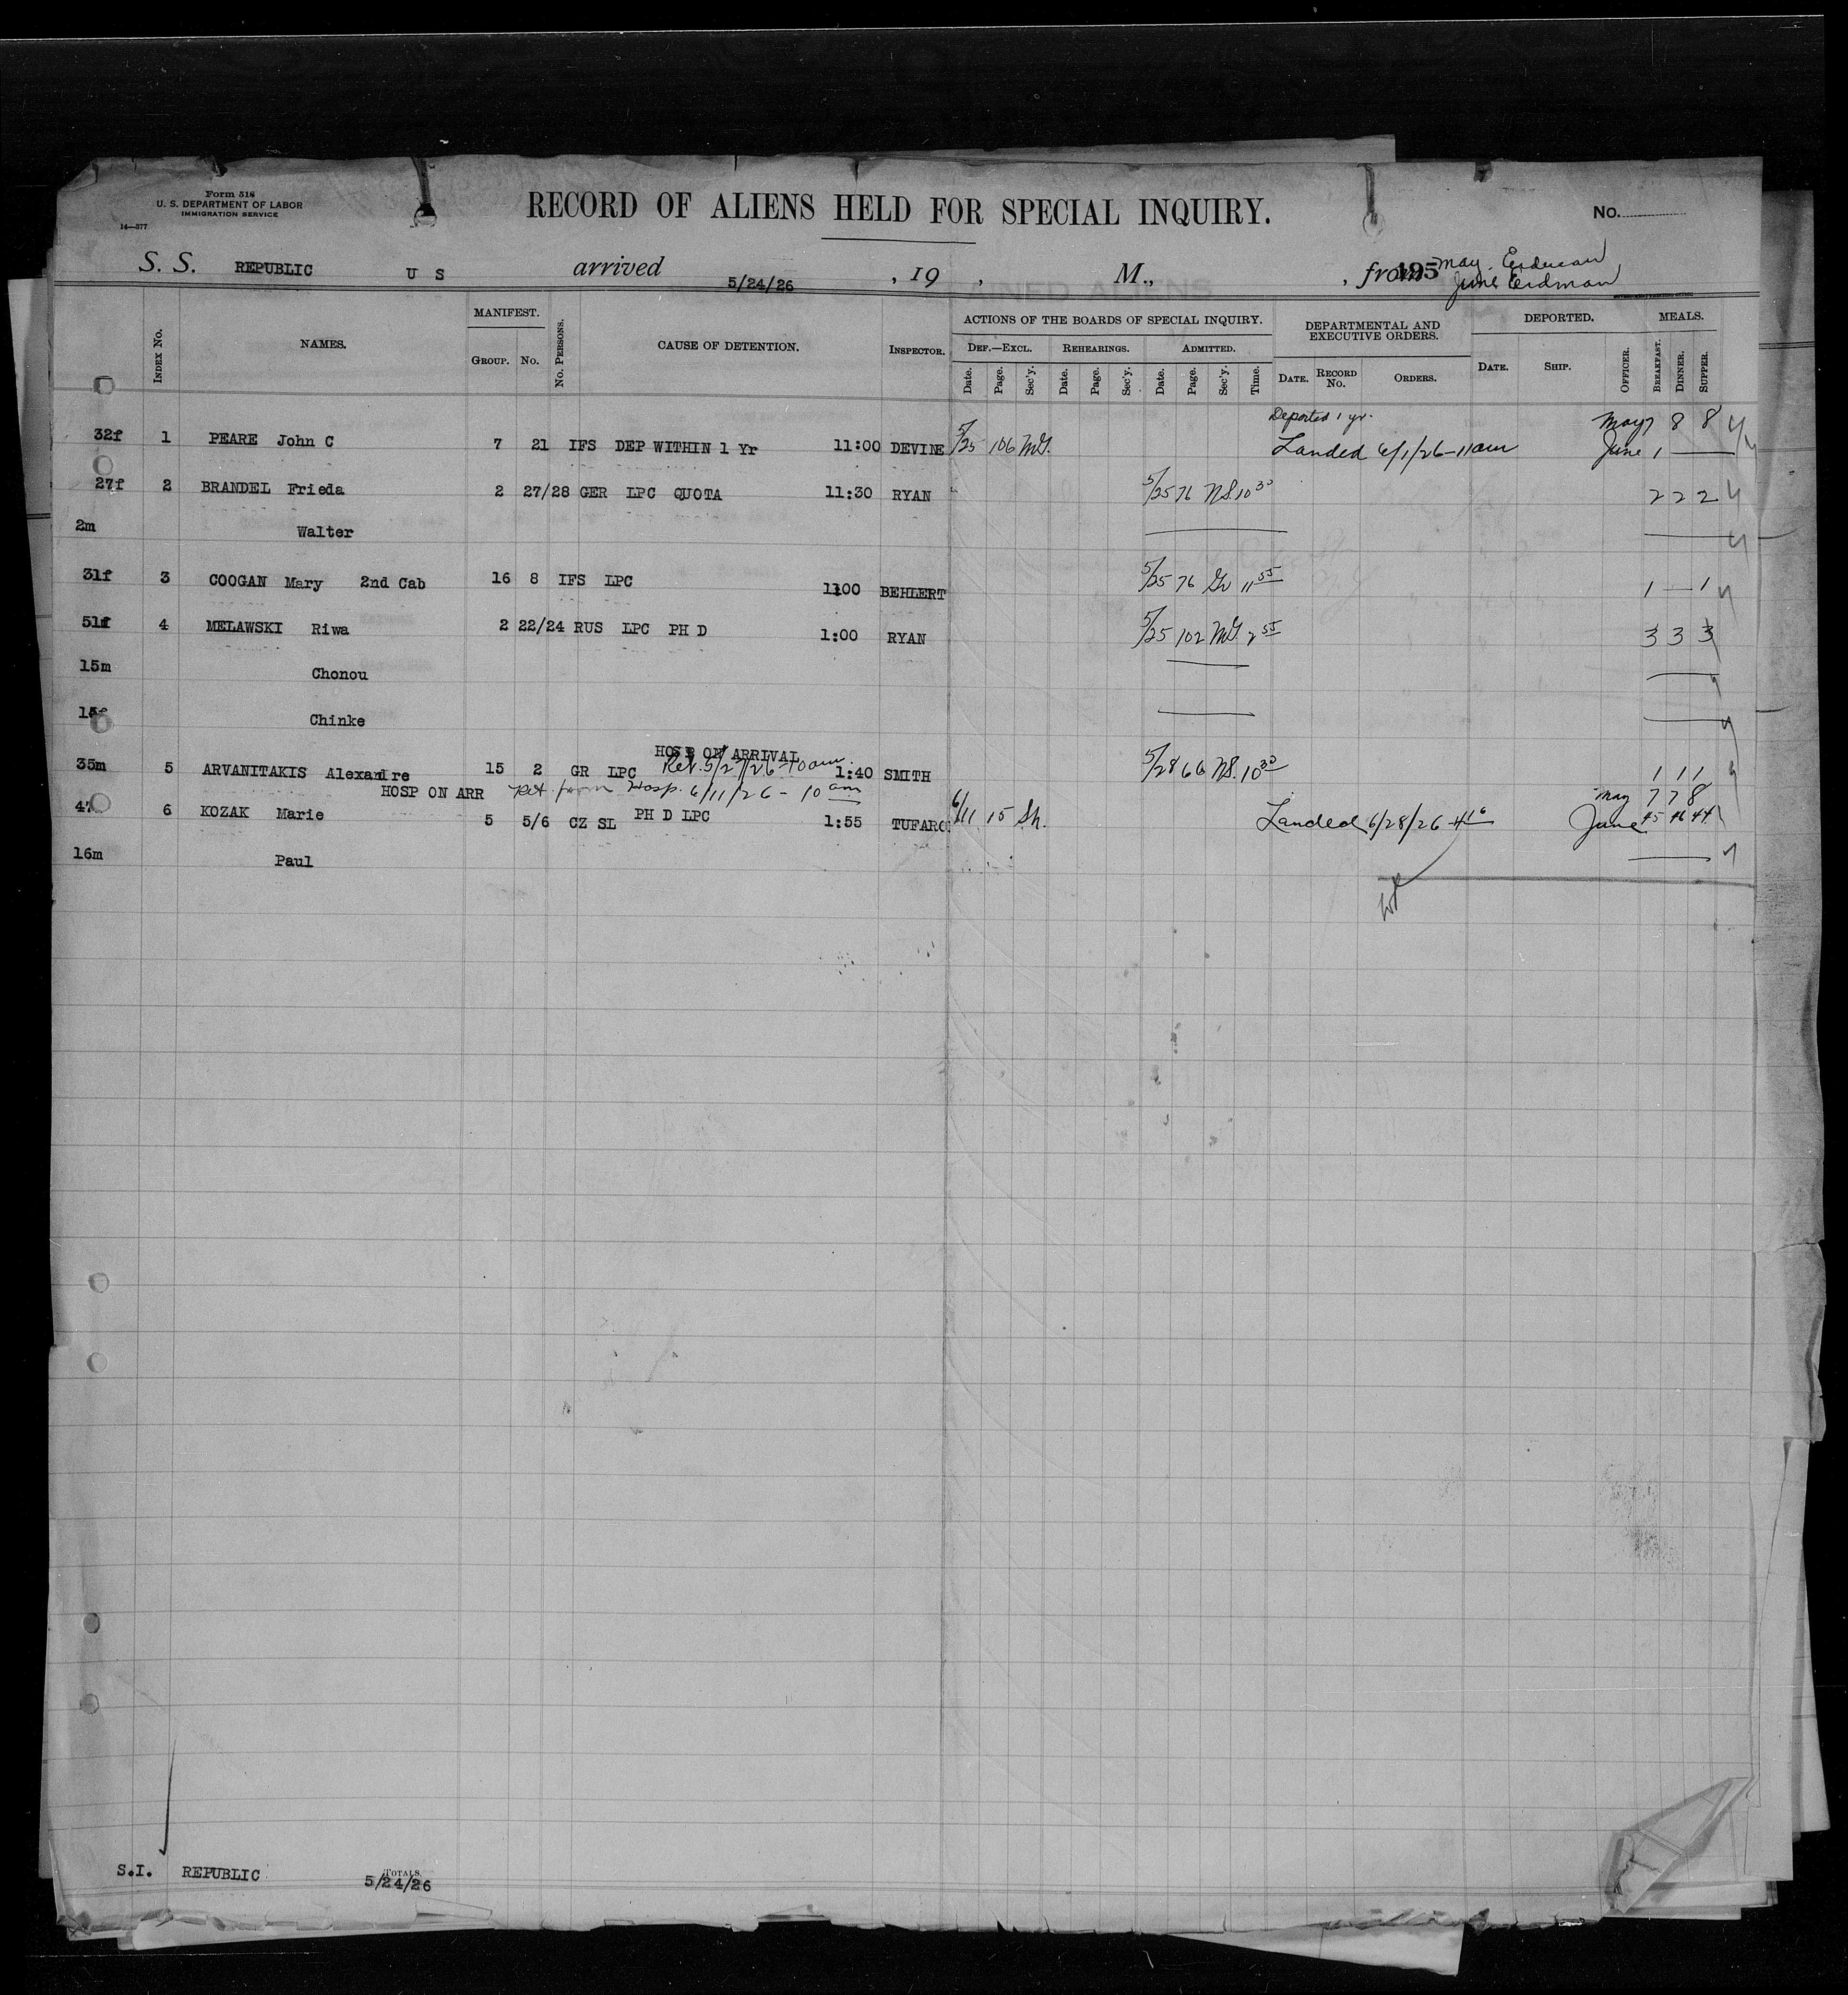 Form 518
U. S. DEPARTMENT OF LABOR
IMMIGRATION SERVICE
14—377
RECORD OF ALIENS HELD FOR SPECIAL INQUIRY.
No.
S. S. REPUBLIC U S arrived 5/24/26 , 19 , M., , from 195 May. Erdman
June Erdman
INDEX No. NAMES. MANIFEST. GROUP. No. No. PERSONS. CAUSE OF DETENTION. INSPECTOR. ACTIONS OF THE BOARDS OF SPECIAL INQUIRY. DEPARTMENTAL AND EXECUTIVE ORDERS. DEPORTED. MEALS.
DEF.—EXCL. REHEARINGS. ADMITTED.
Date. Page. Sec'y. Date. Page. Sec'y. Date. Page. Sec'y. Time. DATE. RECORD No. ORDERS. DATE. SHIP. OFFICER. BREAKFAST. DINNER. SUPPER.
Deported 1 yr. May 7 8 8
32f 1 PEARE John C 7 21 IFS DEP WITHIN 1 Yr 11:00 DEVINE 5/25 106 MG. Landed 6/1/26-11am June 1
27f 2 BRANDEL Frieda 2 27/28 GER LPC QUOTA 11:30 RYAN 5/25 76 NS 10 30 2 2 2
2m Walter
31f 3 COOGAN Mary 2nd Cab 16 8 IFS LPC 1100 BEHLERT 5/25 76 Gv 11 55 1 — 1
51f 4 MELAWSKI Riwa 2 22/24 RUS LPC PH D 1:00 RYAN 5/25 102 MG 2 55 3 3 3
15m Chonou
15f Chinke
HOSP ON ARRIVAL
35m 5 ARVANITAKIS Alexandre 15 2 GR LPC Ret. 5/27/26-10am 1:40 SMITH 5/28 66 NS. 10 30 1 1 1
HOSP ON ARR Ret. from Hosp. 6/11/26 - 10 am May 7 7 8
47 6 KOZAK Marie 5 5/6 CZ SL PH D LPC 1:55 TUFARO 6/11 15 Sh. Landed 6/28/26 June 45 46 44
16m Paul
S.I. REPUBLIC TOTALS 5/24/26